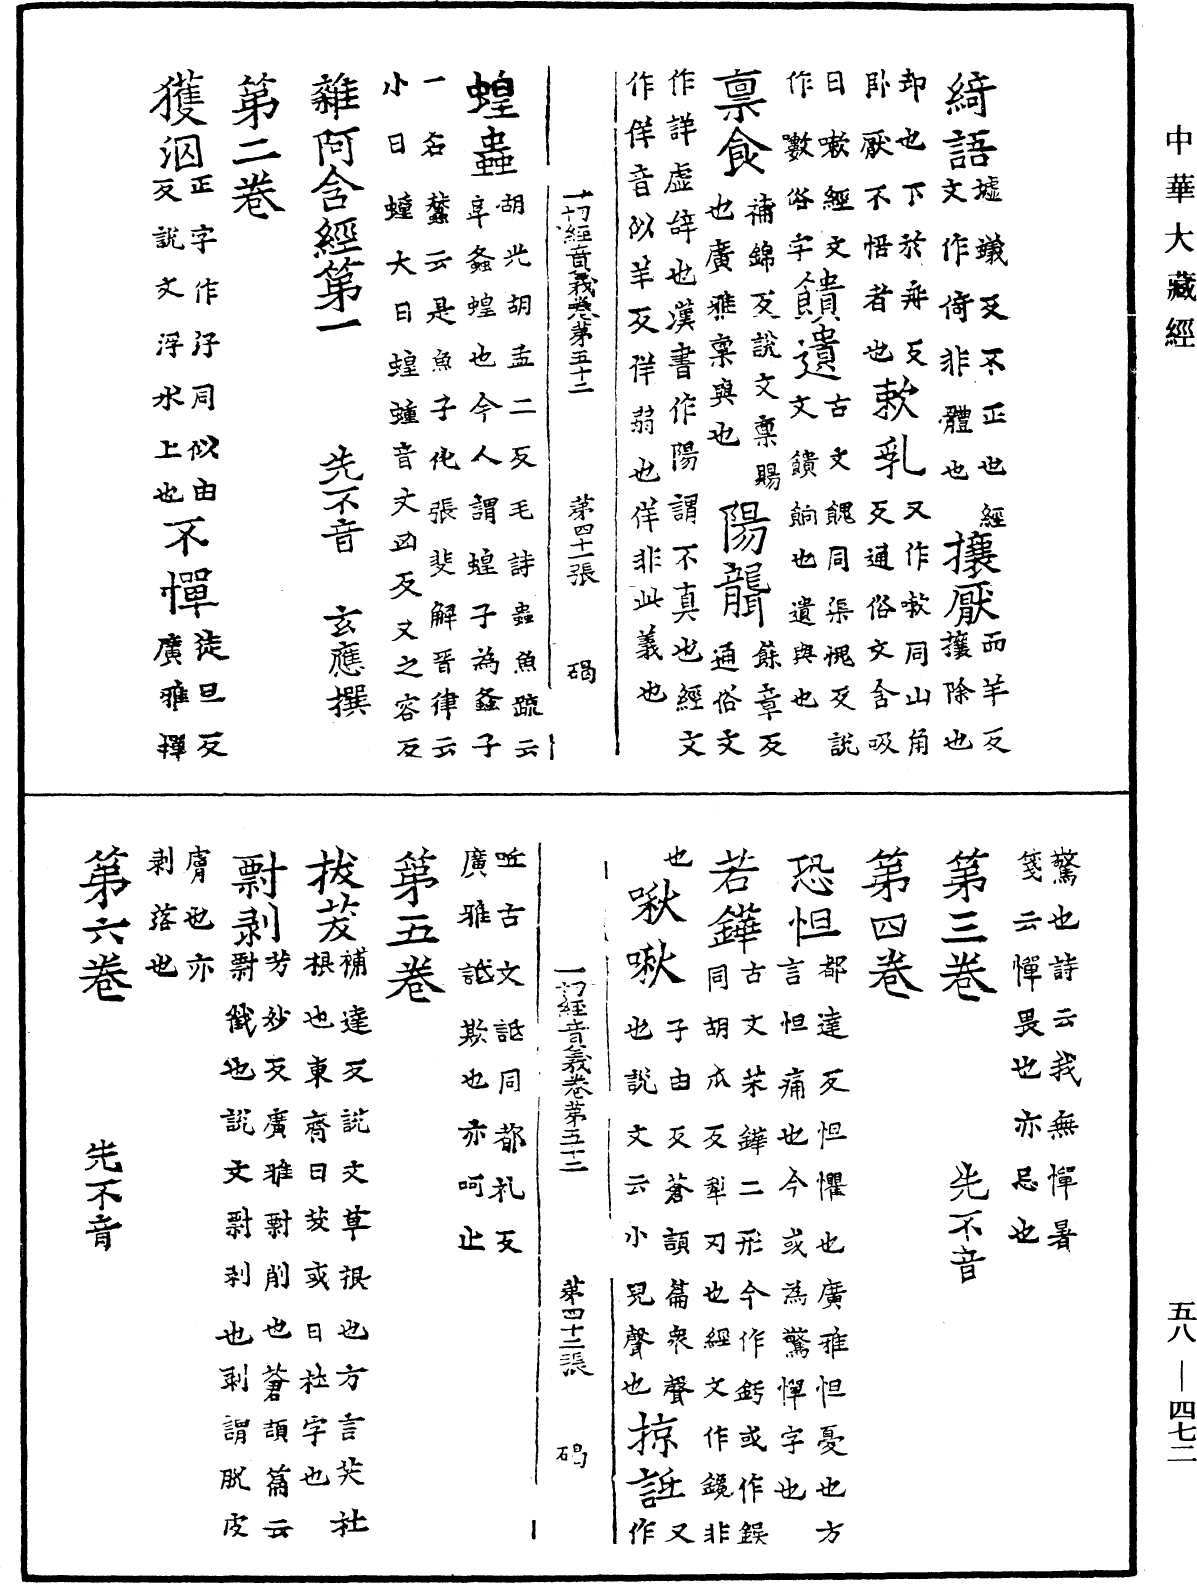 中華大藏經
綺語墟蟻反不正也經
文作倚非體也攘厭而羊反攘除也
却也下於冉反
卧厭不悟者也欶乳又作嗽同山角反通俗文含吸
曰嗽經文饋遺古文餽同渠愧反說
作𠿒俗字文饋餉也遺與也
稟食補錦反說文稟賜
也廣雅稟與也陽聾餘章反通俗文
作詳虛辞也漢書作陽謂不真也經文
作佯音似羊反佯弱也佯非此義也
一切經音義卷第五十二 第四十一張 碣
蝗蟲胡光胡孟二反毛詩蟲魚疏云
阜螽蝗也今人謂蝗子為螽子
一名蠜云是魚子化張斐解晋律云
小曰螽大曰蝗螽音文凶反又之容反
雜阿含經第一 先不音 玄應撰
第二卷
獲泅正字作汓同似由
反說文浮水上也不憚徒旦反
廣雅憚
驚也詩云我無憚暑
箋云憚畏也亦忌也
第三卷 先不音
第四卷
恐怛都達反怛懼也廣雅怛憂也方
言怛痛也今或為驚憚字也
若鏵古文茉鏵二形今作釫或作鋘
同胡瓜反犁刃也經文作鐃非
也啾啾子由反蒼頡篇衆聲
也說文云小兒聲也掠詆又
作
呧古文詆同都礼反
廣雅詆欺也亦呵止
第五卷
拔茇補達反說文草根也方言茇杜
根也東齊曰茇或曰杜字也
剽剥芳妙反廣雅剽削也蒼頡篇云
剽截也說文剽刺也剥謂脫皮
膚也亦
剥落也
第六卷 先不音
一切經音義卷第五十二 第四十二張 碣
五八—四七二